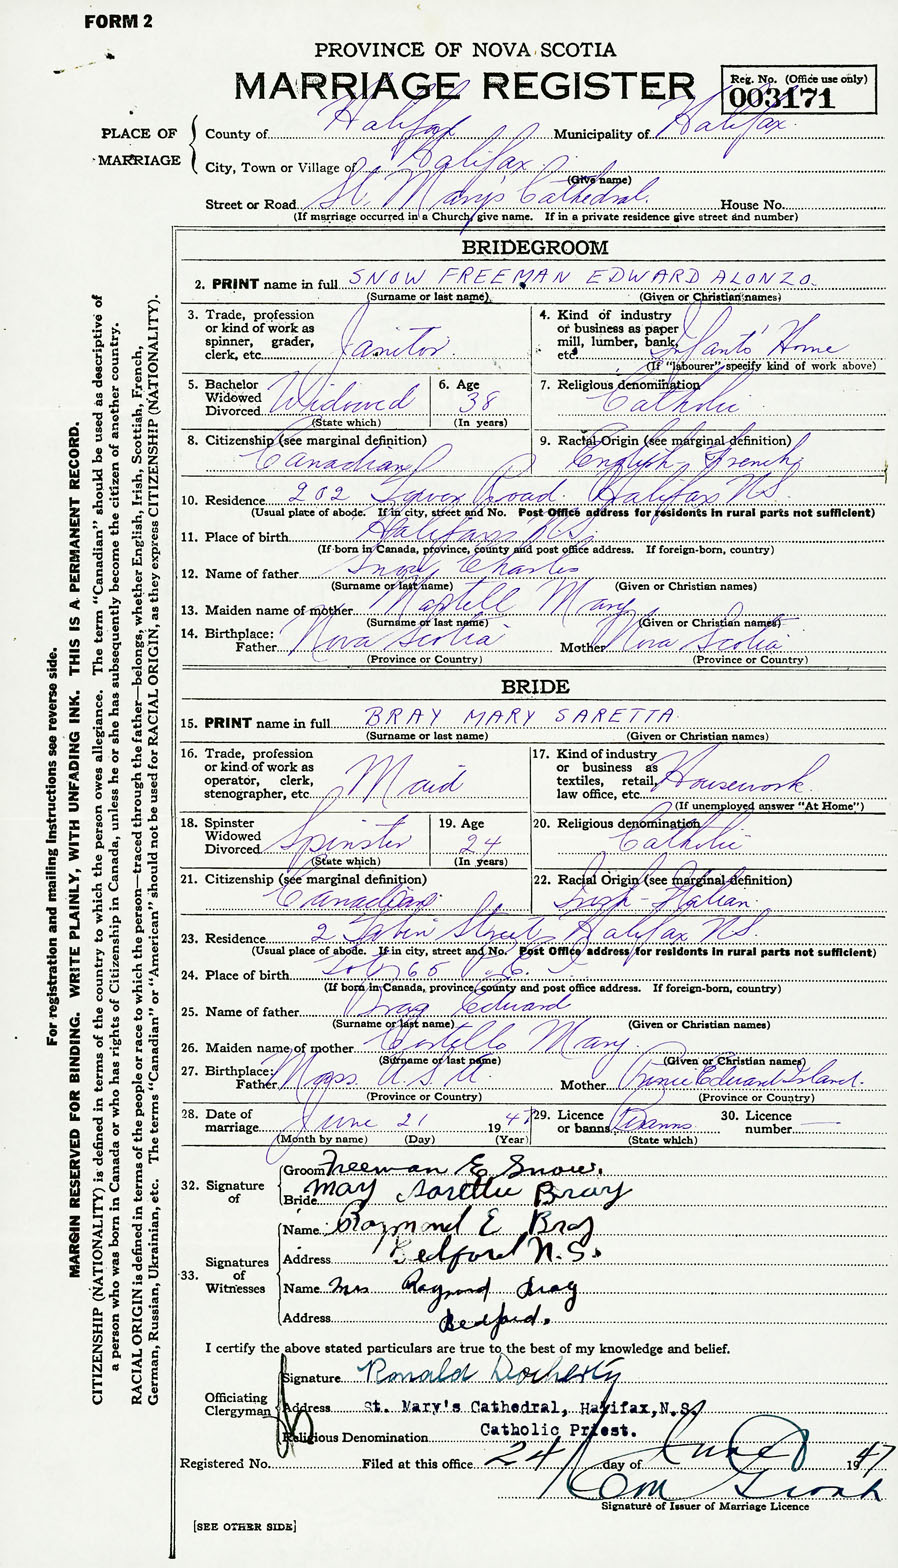 FORM 2
PROVINCE OF NOVA SCOTIA
MARRIAGE REGISTER
Reg. No. (Office use only)
003171
PLACE OF MARRIAGE
County of Halifax Municipality of Halifax.
City, Town or Village of Halifax.
(Give name)
Street or Road St. Mary's Cathedral. House No.
(If marriage occurred in a Church, give name. If in a private residence give street and number)
BRIDEGROOM
2. PRINT name in full SNOW FREEMAN EDWARD ALONZO.
(Surname or last name) (Given or Christian names)
3. Trade, profession or kind of work as spinner, grader, clerk, etc. Janitor.
4. Kind of industry or business as paper mill, lumber, bank, etc. Infants' Home
(If "labourer" specify kind of work above)
5. Bachelor Widowed Divorced Widowed
(State which)
6. Age 38
(In years)
7. Religious denomination Catholic
8. Citizenship (see marginal definition) Canadian
9. Racial Origin (see marginal definition) English, French
10. Residence 202 Tower Road. Halifax N.S.
(Usual place of abode. If in city, street and No. Post Office address for residents in rural parts not sufficient)
11. Place of birth Halifax N.S.
(If born in Canada, province, county and post office address. If foreign-born, country)
12. Name of father Snow Charles
(Surname or last name) (Given or Christian names)
13. Maiden name of mother Martell Mary
(Surname or last name) (Given or Christian names)
14. Birthplace: Father Nova Scotia Mother Nova Scotia
(Province or Country) (Province or Country)
BRIDE
15. PRINT name in full BRAY MARY SARETTA
(Surname or last name) (Given or Christian names)
16. Trade, profession or kind of work as operator, clerk, stenographer, etc. Maid
17. Kind of industry or business as textiles, retail, law office, etc. Housework.
(If unemployed answer "At Home")
18. Spinster Widowed Divorced Spinster
(State which)
19. Age 24
(In years)
20. Religious denomination Catholic
21. Citizenship (see marginal definition) Canadian
22. Racial Origin (see marginal definition) Irish - Italian.
23. Residence 2 Tobin Street, Halifax N.S.
(Usual place of abode. If in city, street and No. Post Office address for residents in rural parts not sufficient)
24. Place of birth Lot 65
(If born in Canada, province, county and post office address. If foreign-born, country)
25. Name of father Bray Edward
(Surname or last name) (Given or Christian names)
26. Maiden name of mother Costello Mary.
(Surname or last name) (Given or Christian names)
27. Birthplace: Father Mass. U.S.A. Mother Prince Edward Island.
(Province or Country) (Province or Country)
28. Date of marriage June 21 1947
(Month by name) (Day) (Year)
29. Licence or banns Banns
(State which)
30. Licence number —
32. Signature of
Groom Freeman E Snow.
Bride Mary Saretta Bray
33. Signatures of Witnesses
Name Raymond E Bray
Address Bedford N.S.
Name Mrs Raymond Bray
Address Bedford.
I certify the above stated particulars are true to the best of my knowledge and belief.
Officiating Clergyman
Signature Ronald Docherty
Address St. Mary's Cathedral, Halifax, N.S.
Religious Denomination Catholic Priest.
Registered No. Filed at this office 24 day of June 1947
Signature of Issuer of Marriage Licence
[SEE OTHER SIDE]
For registration and mailing instructions see reverse side.
MARGIN RESERVED FOR BINDING. WRITE PLAINLY, WITH UNFADING INK. THIS IS A PERMANENT RECORD.
CITIZENSHIP (NATIONALITY) is defined in terms of the country to which the person owes allegiance. The term "Canadian" should be used as descriptive of
a person who was born in Canada or who has rights of Citizenship in Canada, unless he or she has subsequently become the citizen of another country.
RACIAL ORIGIN is defined in terms of the people or race to which the person—traced through the father—belongs, whether English, Irish, Scottish, French,
German, Russian, Ukrainian, etc. The terms "Canadian" or "American" should not be used for RACIAL ORIGIN, as they express CITIZENSHIP (NATIONALITY).